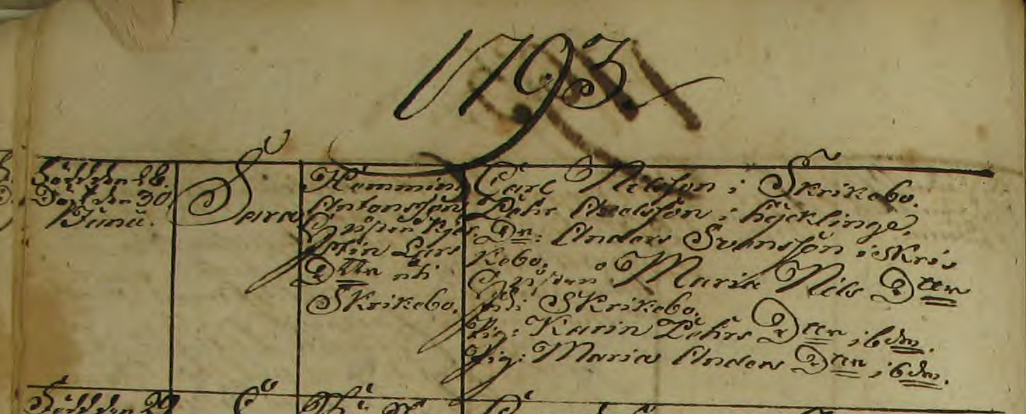 1793.
Född den 28.
Döpt den 30
Junii.
Sara
Hemming
Antonsson
Hustrun
Lars
Dtter uti
Skrikebo.
Carl Nilsson i Skrikebo.
Pehr Axelsson i
Dr: Anders Svensson i Skri-
kebo.
Hustrun Maria Nils Dtter
uti Skrikebo.
Pig: Karin Pehrs Dtter, ibdm.
Pig: Maria Anders Dtter, ibdm.
Född den 29